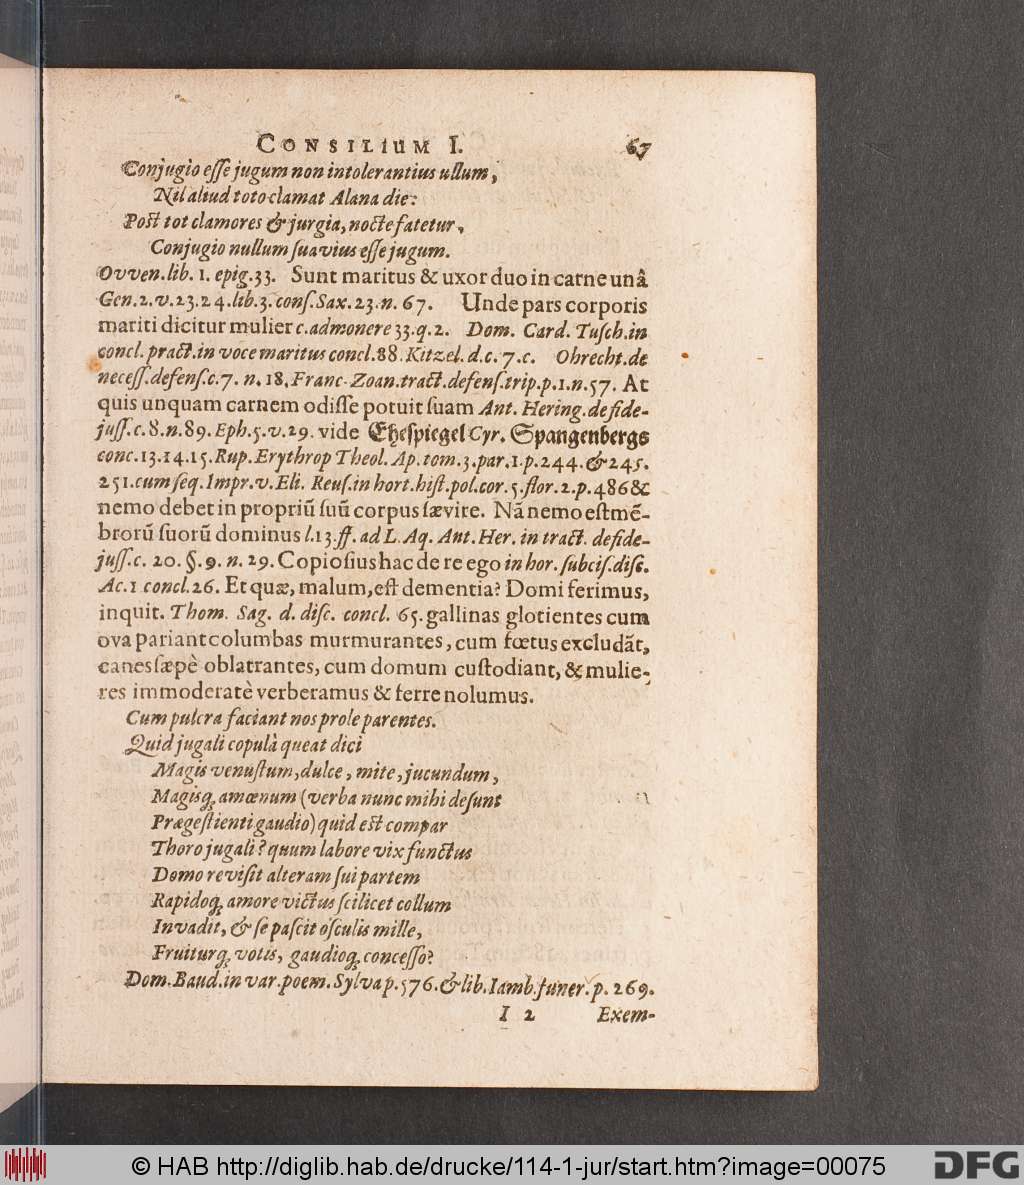 CONSILIUM I. 67
Conjugio esse jugum non intolerantius ullum,
Nil aliud toto clamat Alana die:
Post tot clamores & jurgia, nocte fatetur,
Conjugio nullum suavius esse jugum.
Ovven. lib. 1. epig. 33. Sunt maritus & uxor duo in carne unâ
Gen. 2. v. 23. 24. lib. 3. cons. Sax. 23. n. 67. Unde pars corporis
mariti dicitur mulier c. admonere 33. q. 2. Dom. Card. Tusch. in
concl. pract. in voce maritus concl. 88. Kitzel. d. c. 7. c. Obrecht. de
necess. defens. c. 7. n. 18. Franc. Zoan. tract. defens. trip. p. 1. n. 57. At
quis unquam carnem odisse potuit suam Ant. Hering. de fide-
juss. c. 8. n. 89. Eph. 5. v. 29. vide Ehespiegel Cyr. Spangenbergs
conc. 13. 14. 15. Rup. Erythrop Theol. Ap. tom. 3. par. 1. p. 244. & 245.
251. cum seq. Impr. v. Eli. Reus. in hort. hist. pol. cor. 5. flor. 2. p. 486 &
nemo debet in propriũ suũ corpus sævire. Nã nemo est mẽ-
brorũ suorũ dominus l. 13. ff. ad L. Aq. Ant. Her. in tract. de fide-
juss. c. 20. §. 9. n. 29. Copiosius hac de re ego in hor. subcis. disc.
Ac. 1 concl. 26. Et quæ, malum, est dementia? Domi ferimus,
inquit. Thom. Sag. d. disc. concl. 65. gallinas glotientes cum
ova pariant columbas murmurantes, cum fœtus excludãt,
canes sæpè oblatrantes, cum domum custodiant, & mulie-
res immoderatè verberamus & ferre nolumus.
Cum pulcra faciant nos prole parentes.
Quid jugali copulà queat dici
Magis venustum, dulce, mite, jucundum,
Magisq; amœnum (verba nunc mihi desunt
Prægestienti gaudio) quid est compar
Thoro jugali? quum labore vix functus
Domo revisit alteram sui partem
Rapidoq; amore victus scilicet collum
Invadit, & se pascit osculis mille,
Fruiturq; votis, gaudioq; concesso?
Dom. Baud. in var. poem. Sylva p. 576. & lib. Iamb. funer. p. 269.
I 2 Exem-
© HAB http://diglib.hab.de/drucke/114-1-jur/start.htm?image=00075
DFG